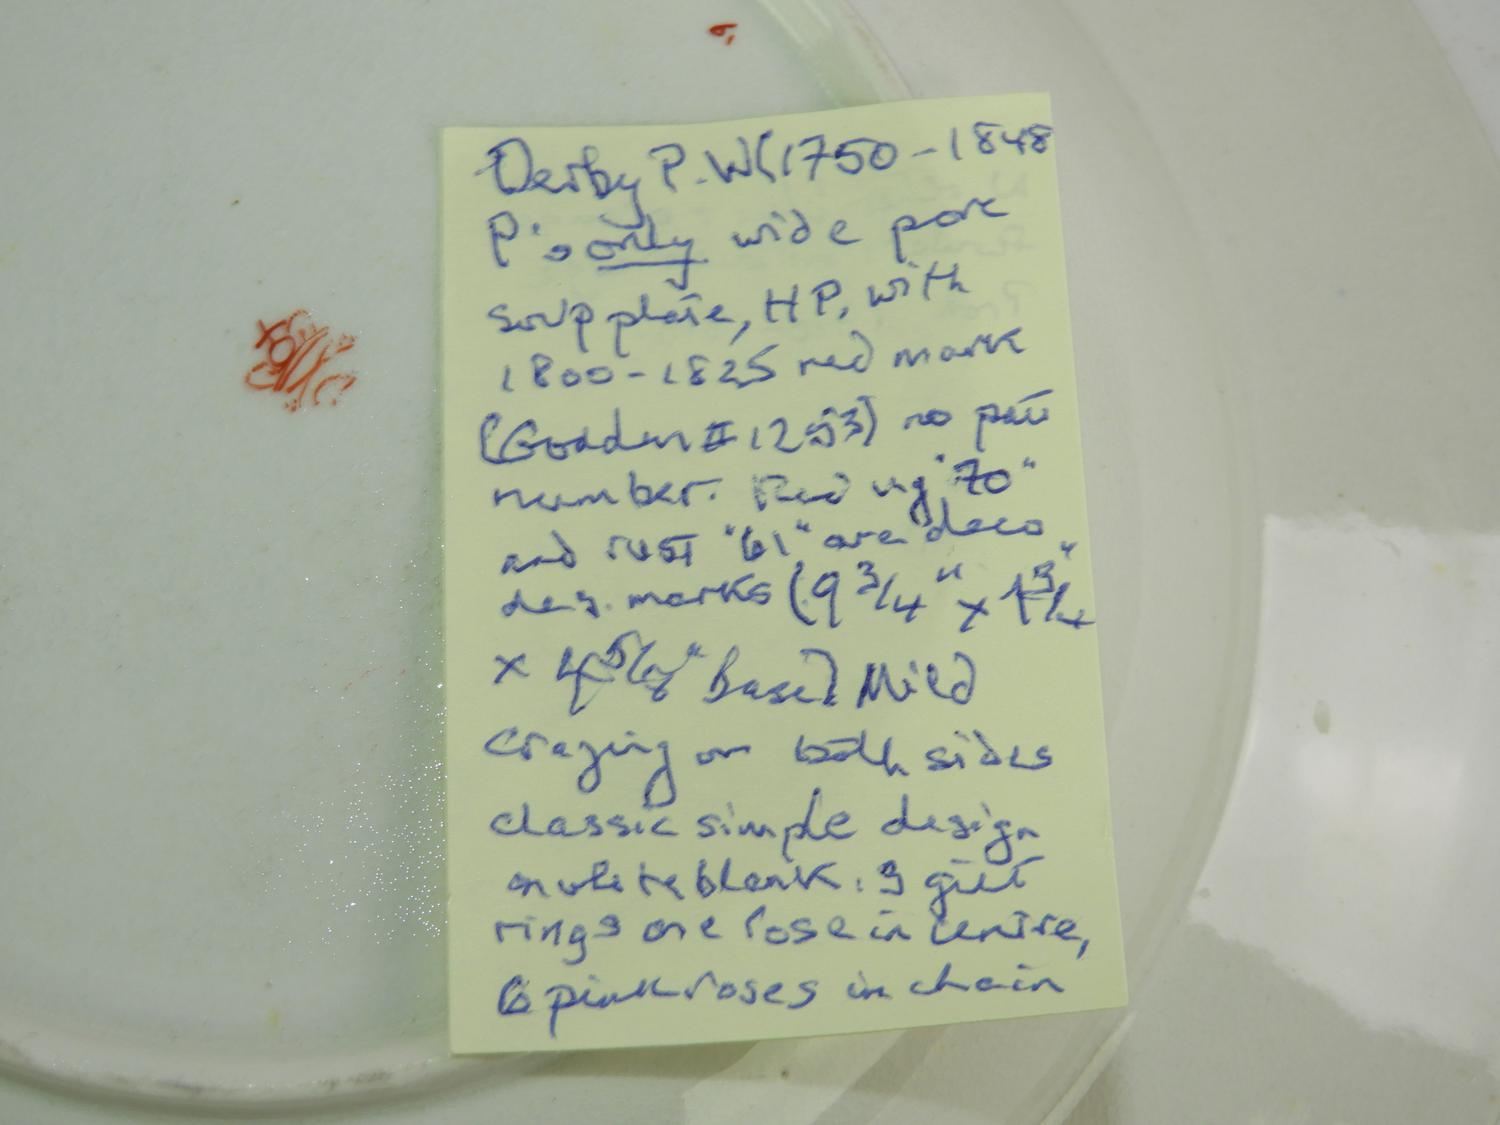 Derby P.W (1750-1848
P's only wide porc
soup plate, H P, with
1800-1825 red mark
(Godden #1253) no patt
number. Red ug "70"
and rust "61" are deco
des. marks (9 3/4" x 1 3/4"
x 4 5/8" base) Mild
crazing on both sides
classic simple design
on white blank. 3 gilt
rings one rose in centre,
6 pink roses in chain